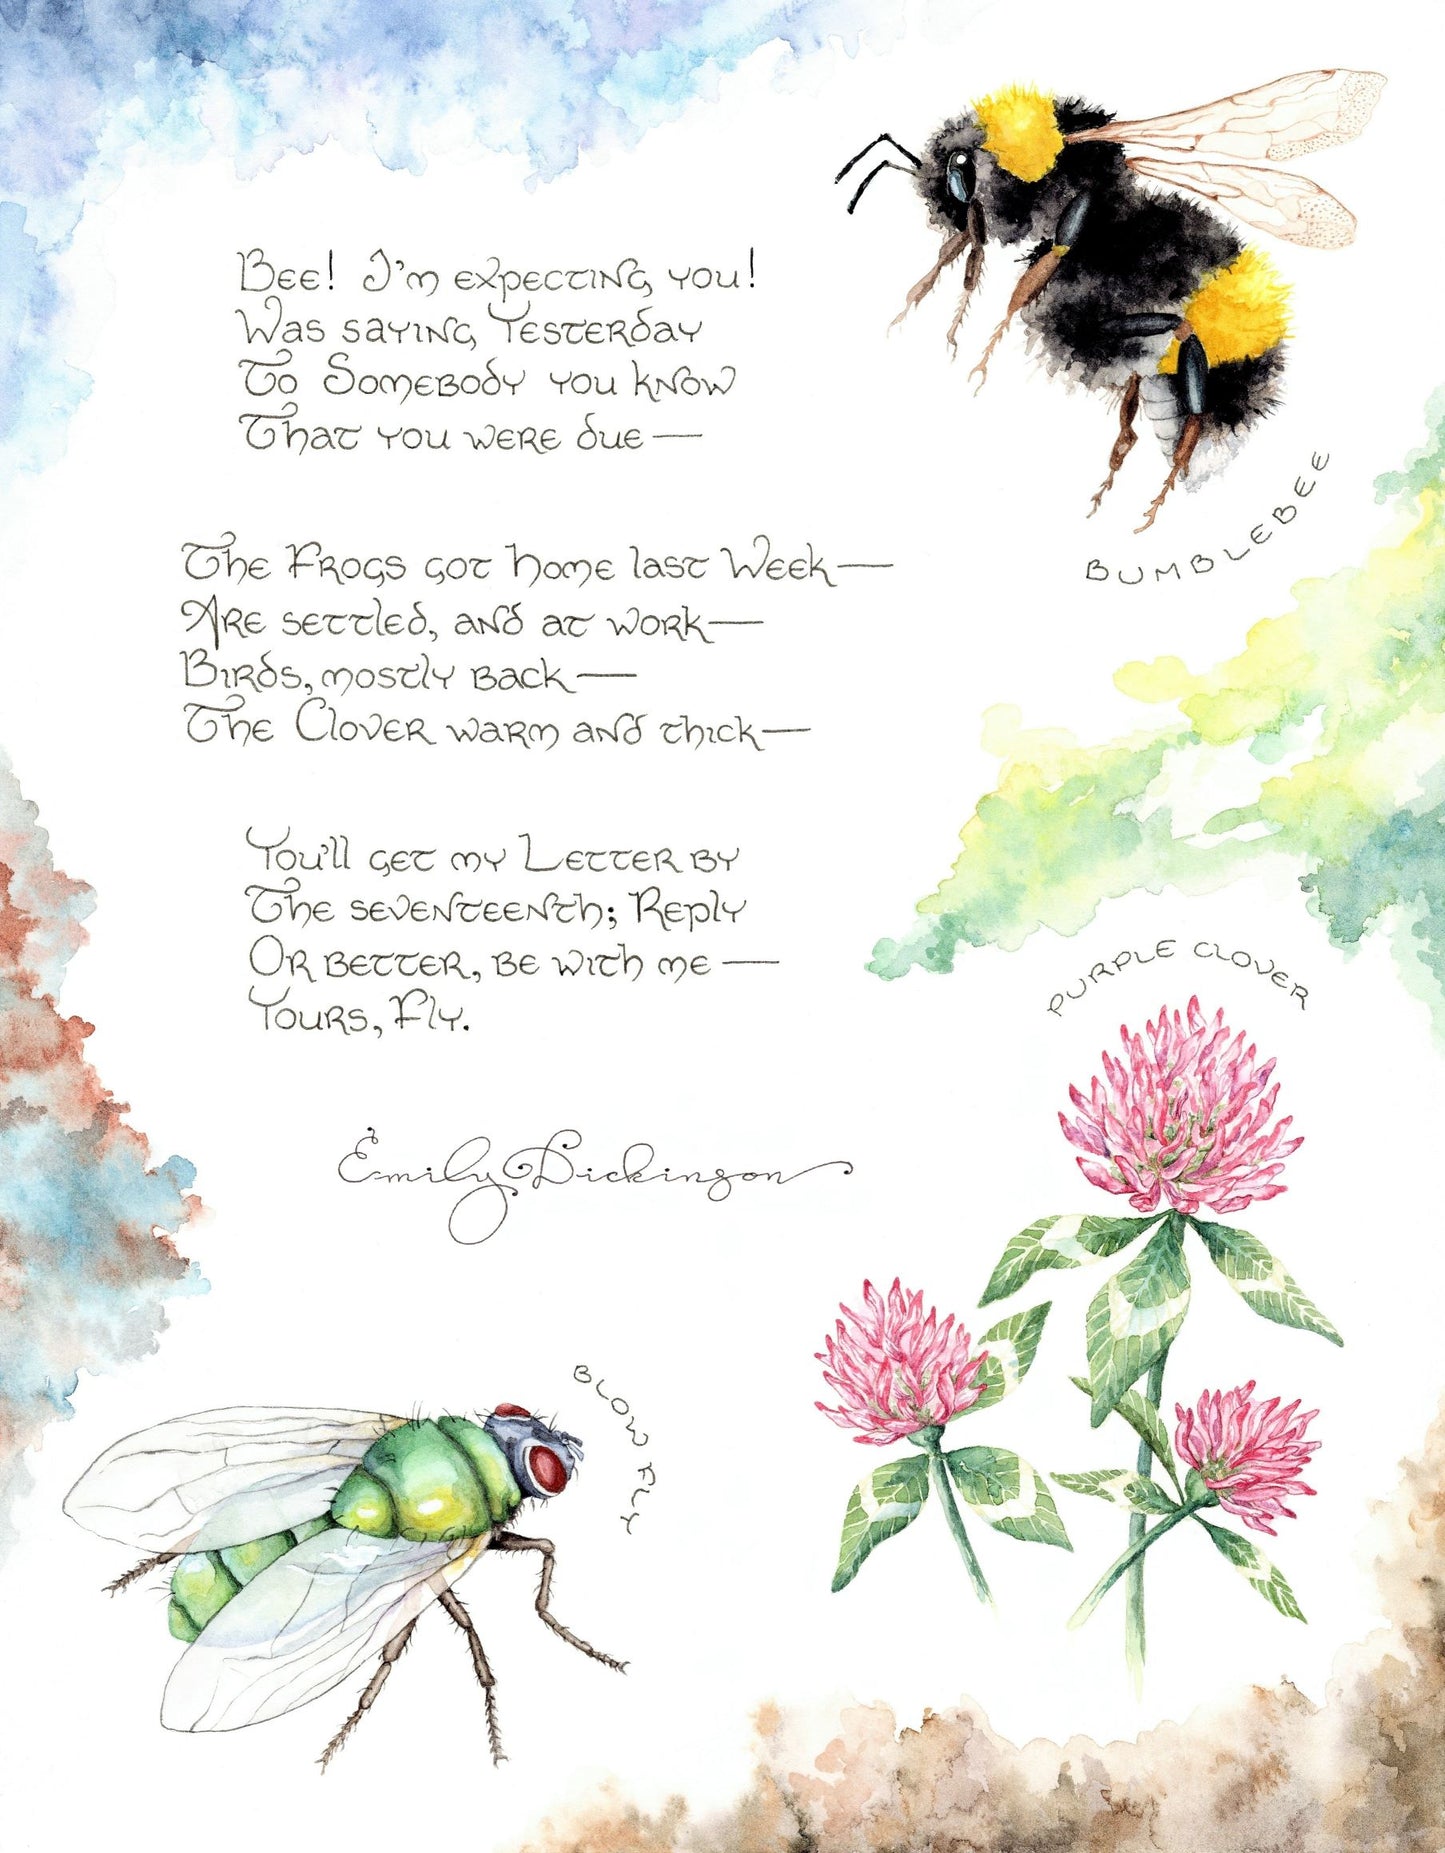 Bee! I'm expecting you!
Was saying Yesterday
To Somebody you know
That you were due—
BUMBLEBEE
The Frogs got Home last Week—
Are settled, and at work—
Birds, mostly back—
The Clover warm and thick—
You'll get my Letter by
The seventeenth; Reply
Or better, be with me—
Yours, Fly.
PURPLE CLOVER
Emily Dickinson
BLOW FLY